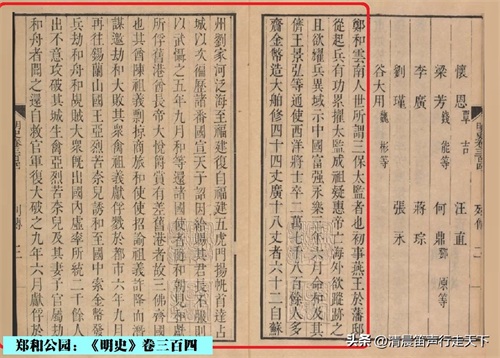 懷恩 覃吉 汪直
梁芳 錢能等 何鼎 鄧原等
李廣 蔣琮
劉瑾 張永
谷大用 魏彬等
鄭和雲南人世所謂三保太監者也初事燕王於藩邸
從起兵有功累擢太監成祖疑惠帝亡海外欲蹤跡之
且欲耀兵異域示中國富强永樂三年六月命和及其
儕王景弘等通使西洋將士卒二萬七千八百餘人多
齎金幣造大舶修四十四丈廣十八丈者六十二自蘇
列傳 二
州劉家河泛海至福建復自福建五虎門揚帆首達占
城以次徧歷諸番國宣天子詔因給賜其君長不服則
以武懾之五年九月和等還諸國使者隨和朝見和獻
所俘舊港酋長帝大悅爵賞有差舊港者故三佛齊國
也其酋陳祖義剽掠商旅和使使招諭祖義詐降而潛
謀邀劫和大敗其衆擒祖義獻俘戮於都市六年九月
再往錫蘭山國王亞烈苦柰兒誘和至國中索金幣發
兵劫和舟和覘賊大衆既出國內虛率所統二千餘人
出不意攻破其城生擒亞烈苦柰兒及其妻子官屬劫
和舟者聞之還自救官軍復大破之九年六月獻俘於
列傳 三
郑和公园：《明史》卷三百四
头条 @清晨笛声行走天下